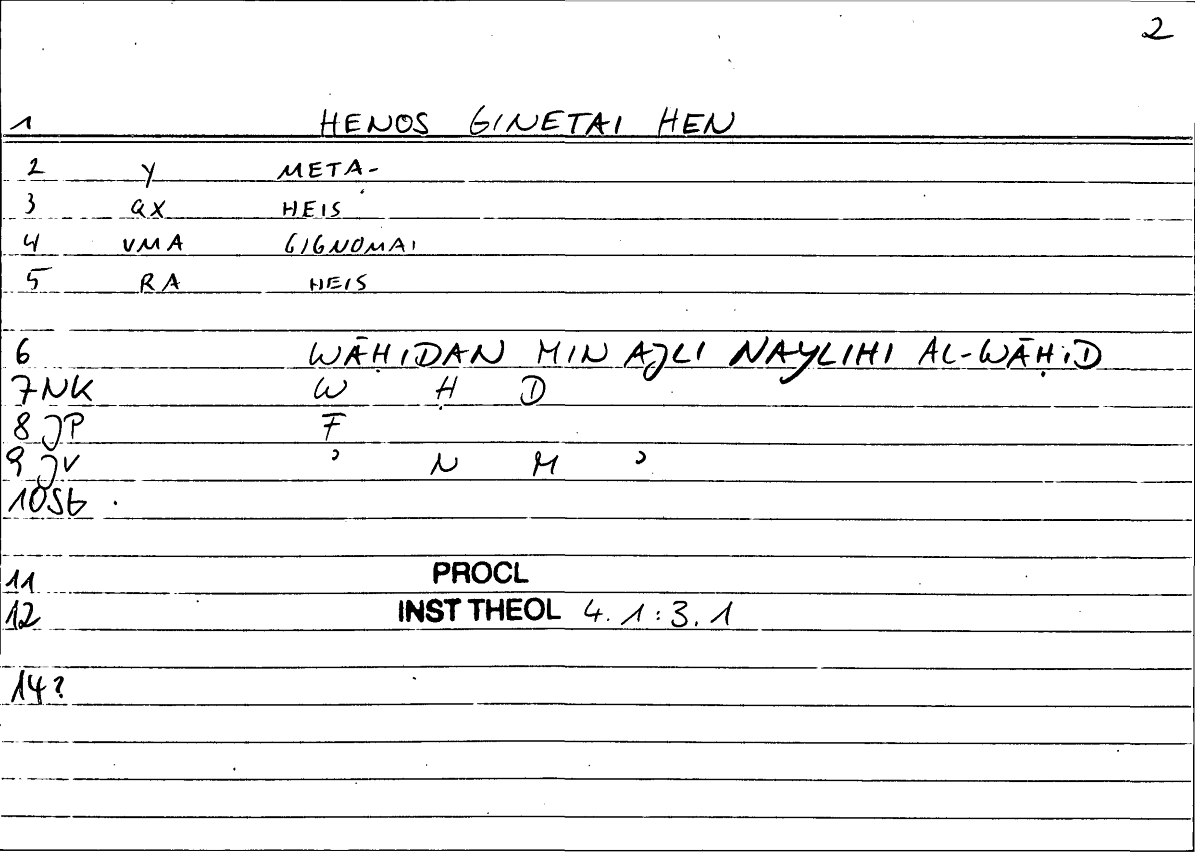 2
1 HENOS GINETAI HEN
2 Y META-
3 QX HEIS
4 VMA GIGNOMAI
5 RA HEIS
6 WĀḤIDAN MIN AJLI NAYLIHI AL-WĀḤID
7 NK W Ḥ D
8 JP F
9 JV ʾ N M ʾ
10 SG
11 PROCL
12 INST THEOL 4.1:3.1
14?